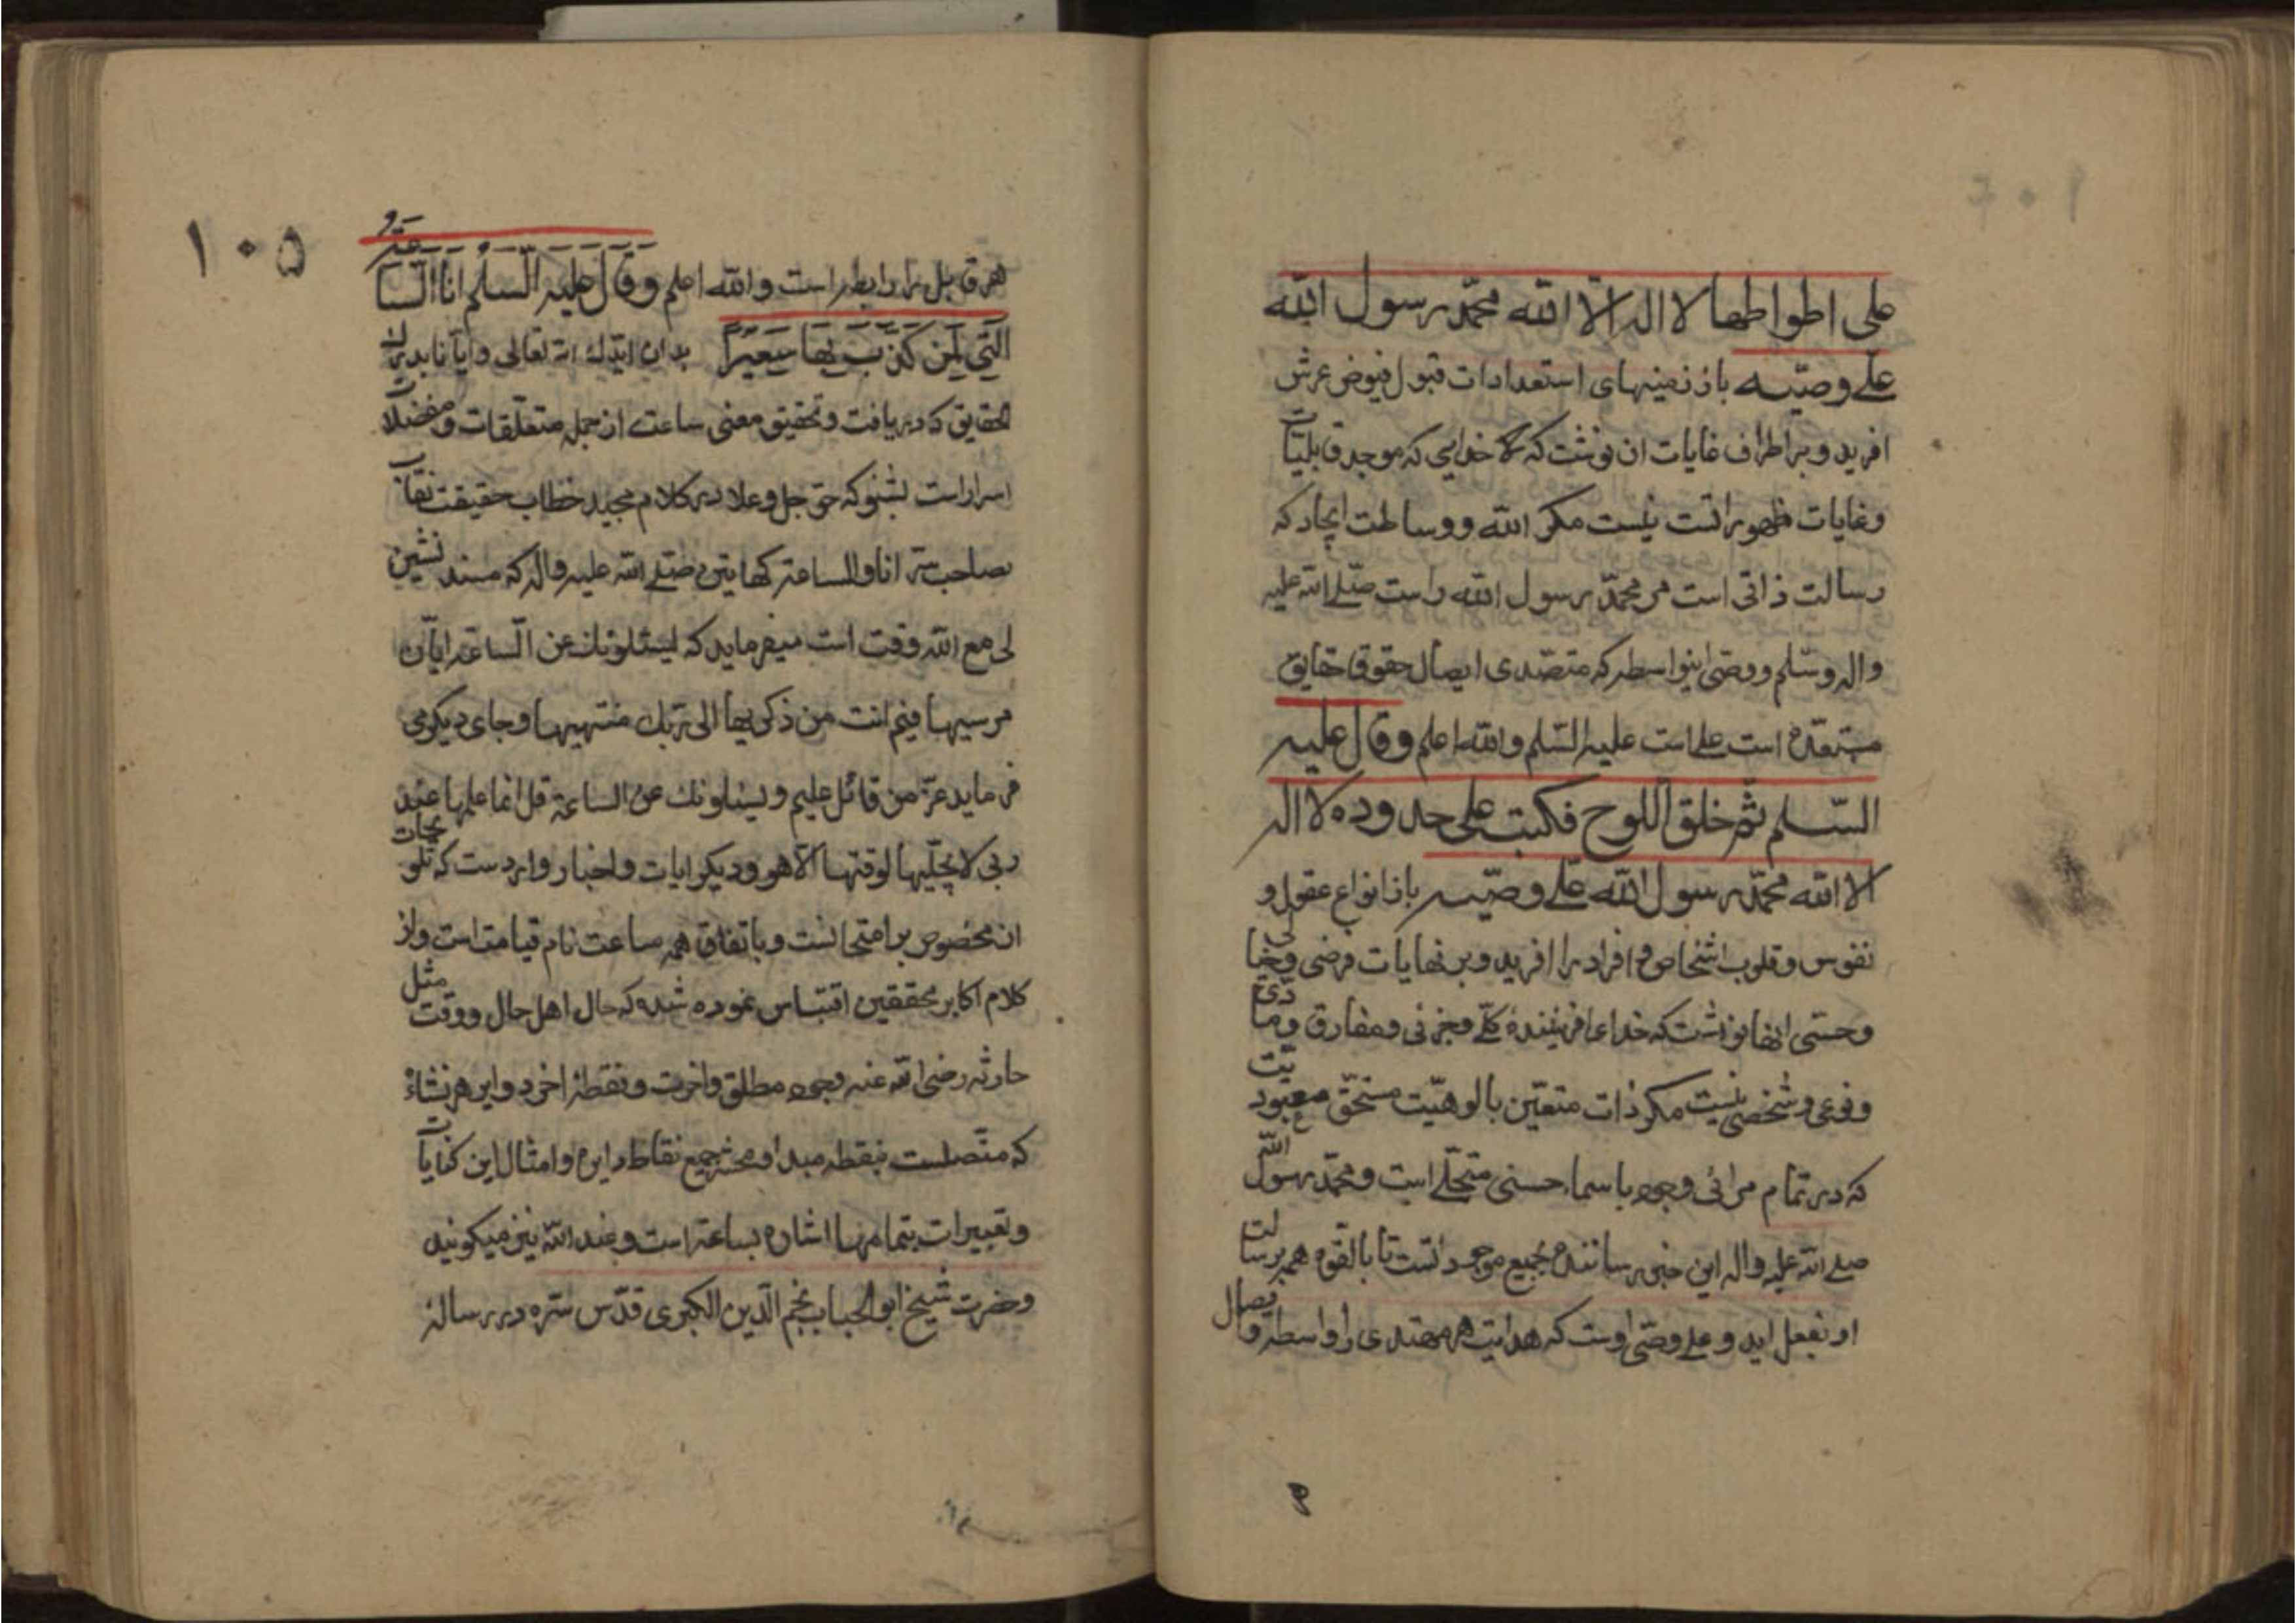 علی اطواطها لا اله الا الله محمد رسول الله
علی وصیه باز زمینهای استعدادات قبول فیوض عرش
افرید و بر اطراف غایات ان نوشت که خدایی که موجد قابلیات
و غایات ظهور انست نیست مکر الله و وساطت ایجاد که
رسالت ذاتی است مر محمد رسول الله راست صلی الله علیه
واله وسلم و وصی اینواسطه که متصدی ایصال حقوق حقایق
مستعده است علی است علیه السلم والله اعلم وقال علیه
السلم ثم خلق اللوح فکتبت علی حدوده لا اله
الا الله محمد رسول الله علی وصیه باز انواع عقول و
نفوس و قلوب اشخاص و افراد را افرید و بر نهایات فرضی وخیالی
وحسی انها نوشت که خدای افریننده کلی وجزئی ومفارق ومادی
ونوعی وشخصی نیست مکر ذات متعین بالوهیت مستحق معبودیت
که در تمام مرائی وجود باسماء حسنی متجلی است ومحمد رسول الله
صلی الله علیه واله این خبر رساننده بجمیع موجوداتست تا بالقوه همه برسالت
او بفعل اید و علی وصی اوست که هدایت هر مهتدی را واسطه وایصال
۱۰۵
هر قابل را رابطه است والله اعلم وقال علیه السلم انا الساعة
التی لمن کذب بها سعیرا بدان ایدک الله تعالی وایانا بدرک
الحقایق که دریافت وتحقیق معنی ساعت از جمله متعلقات ومفضلات
اسرار است بشنو که حق جل وعلا در کلام مجید خطاب حقیقت نقاب
بصاحب سر انا والساعة کهاتین صلی الله علیه واله که مسند نشین
لی مع الله وقت است میفرماید که یسئلونک عن الساعة ایان
مرسیها فیم انت من ذکریها الی ربک منتهیها وجای دیکر می
فرماید عز من قائل علیم ویسئلونک عن الساعة قل انما علمها عند
ربی لا یجلیها لوقتها الا هو ودیکر ایات واخبار واردست که
ان مخصوص بر امتحانست وباتفاق همه ساعت نام قیامت است واز
کلام اکابر محققین اقتباس نموده شده که حال اهل حال ووقت مثل
حارثه رضی الله عنه وجود مطلق واخرت ونقطه اخر دوایر هر نشاة
که متصلست بنقطه مبدا ومحشر جمیع نقاط دایره وامثال این کنایات
وتعبیرات بتمامها اشاره بساعة است وعند الله نیز میکویند
وحضرت شیخ ابو الجناب نجم الدین الکبری قدس سره در رساله